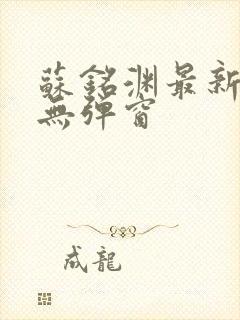 蘇銘淵最新
無彈窗
成龍